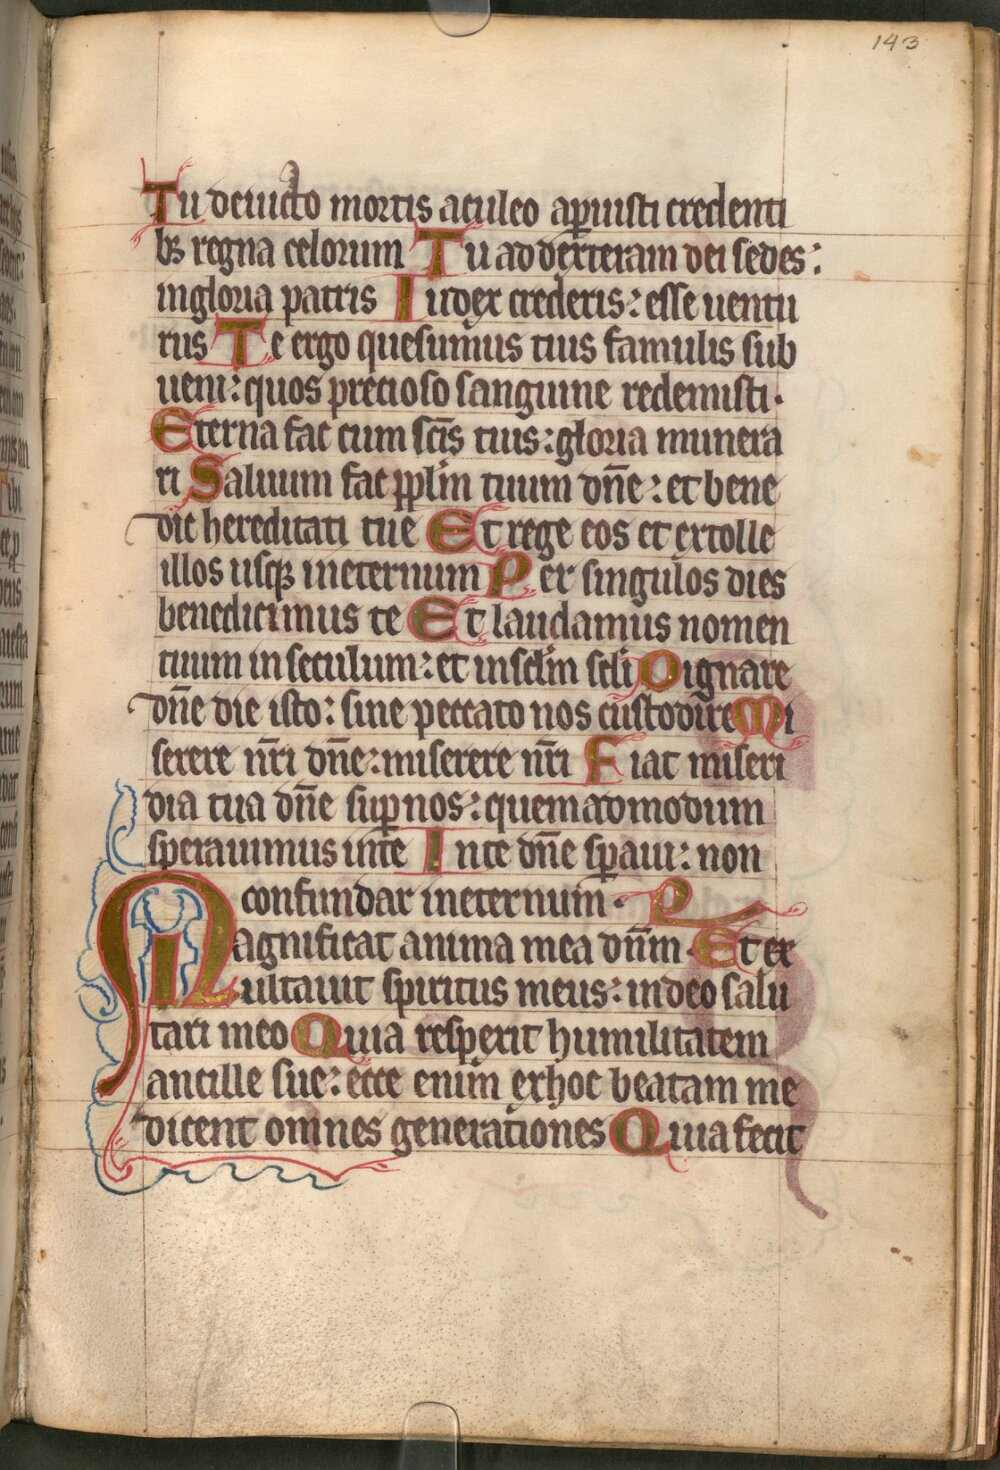 143
Tu deuicto mortis aculeo aꝑuisti credenti
bꝫ regna celorum Tu ad dexteram dei sedes:
in gloria patris Iudex crederis: esse uentu
rus Te ergo quesumus tuis famulis sub
ueni: quos precioso sanguine redemisti.
Eterna fac cum scīs tuis: gloria munera
ri Saluum fac ppl̄m tuum dn̄e: et bene
dic hereditati tue Et rege eos et extolle
illos usqꝫ ineternum Per singulos dies
benedicimus te Et laudamus nomen
tuum in seculum: et in sel̄m sel̄i Dignare
dn̄e die isto: sine peccato nos custodire Mi
serere nr̄i dn̄e: miserere nr̄i Fiat miseri
dia tua dn̄e suꝑ nos: quemadmodum
sperauimus in te In te dn̄e sꝑaui: non
confundar ineternum. R
Magnificat anima mea dn̄m. Et ex
ultauit spiritus meus: in deo salu
tari meo Quia respexit humilitatem
ancille sue: ecce enim̄ ex hoc beatam me
dicent omnes generationes Quia fecit